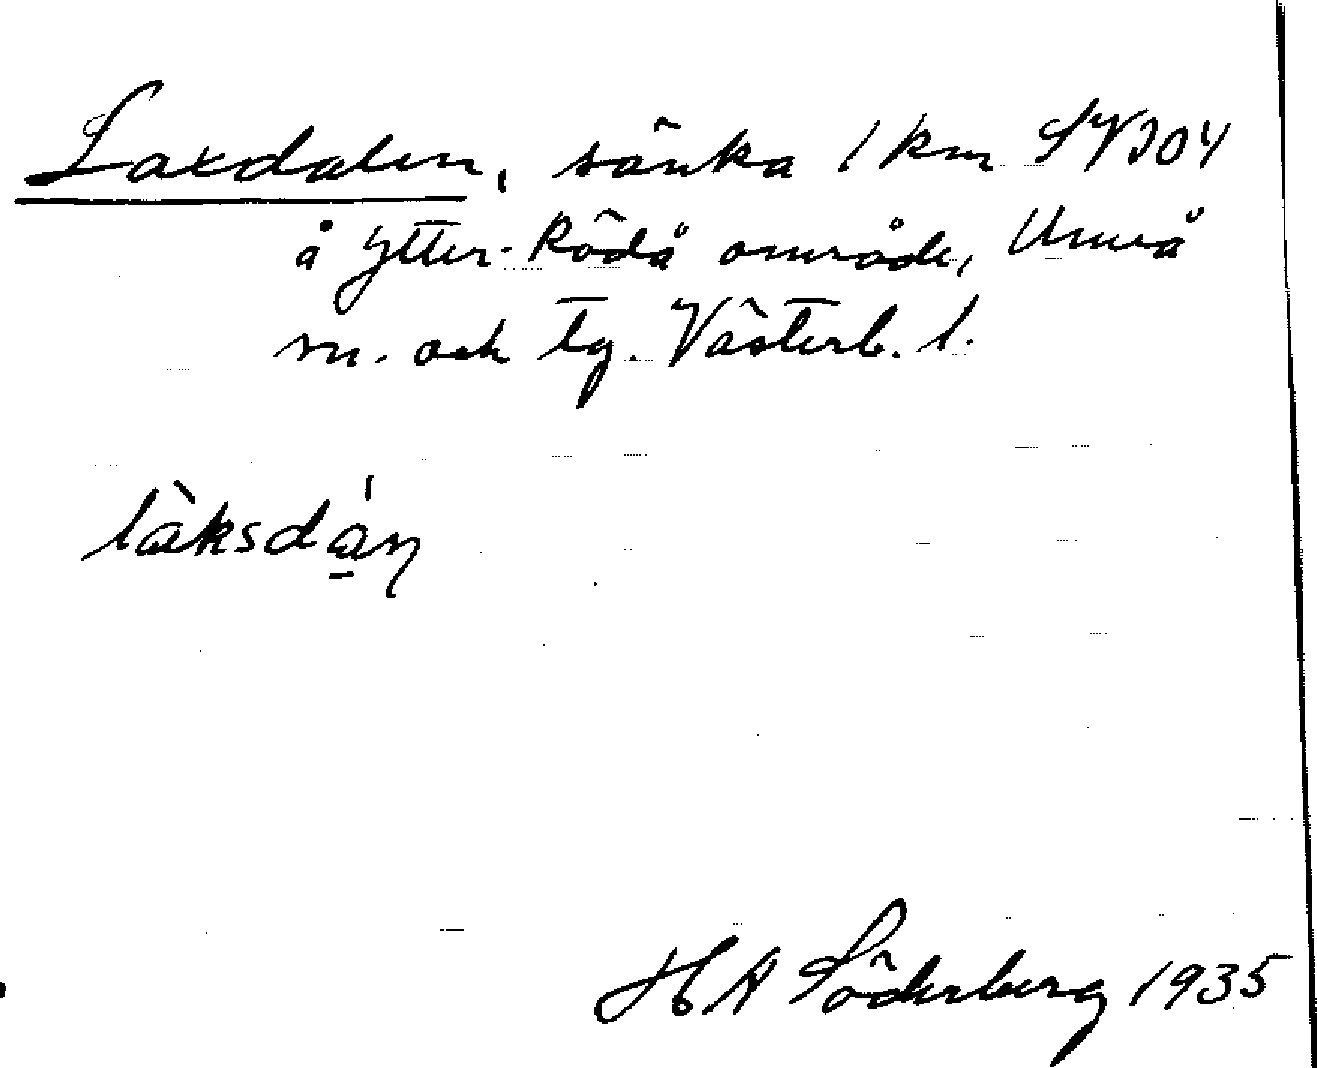 Laxdalen, sänka 1 km SV304
å Ytter-Rödå område, Umeå
sn. och tg. Västerb. l.
làksdá̱ṇ
H A Söderberg 1935